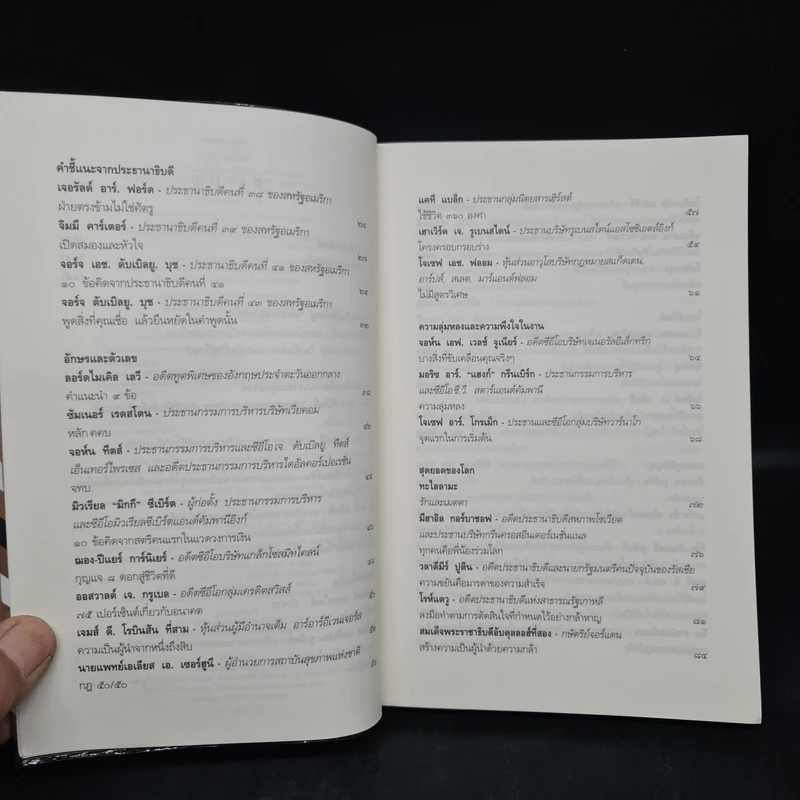 คำชี้แนะจากประธานาธิบดี
เจอรัลด์ อาร์. ฟอร์ด - ประธานาธิบดีคนที่ ๓๘ ของสหรัฐอเมริกา
ฝ่ายตรงข้ามไม่ใช่ศัตรู ๒๔
จิมมี คาร์เตอร์ - ประธานาธิบดีคนที่ ๓๙ ของสหรัฐอเมริกา
เปิดสมองและหัวใจ ๒๗
จอร์จ เอช. ดับเบิลยู. บุช - ประธานาธิบดีคนที่ ๔๑ ของสหรัฐอเมริกา
๑๐ ข้อคิดจากประธานาธิบดีคนที่ ๔๑ ๒๙
จอร์จ ดับเบิลยู. บุช - ประธานาธิบดีคนที่ ๔๓ ของสหรัฐอเมริกา
พูดสิ่งที่คุณเชื่อ แล้วยืนหยัดในคำพูดนั้น ๓๒
อักษรและตัวเลข
ลอร์ดไมเคิล เลวี - อดีตทูตพิเศษของอังกฤษประจำตะวันออกกลาง
คำแนะนำ ๙ ข้อ ๓๘
ซัมเนอร์ เรดสโตน - ประธานกรรมการบริหารบริษัทเวียคอม
หลัก คคบ ๔๒
จอห์น ทีตส์ - ประธานกรรมการบริหารและซีอีโอเจ. ดับเบิลยู. ทีตส์
เอ็นเทอร์ไพรเซส และอดีตประธานกรรมการบริหารไดอัลคอร์เปอเรชั่น
จทบ. ๔๔
มิวเรียล “มิกกี” ซีเบิร์ต - ผู้ก่อตั้ง ประธานกรรมการบริหาร
และซีอีโอมิวเรียลซีเบิร์ตแอนด์คัมพานีอิงก์
๑๐ ข้อคิดจากสตรีคนแรกในแวดวงการเงิน ๔๖
ฌอง-ปีแยร์ การ์นิเยร์ - อดีตซีอีโอบริษัทแกล็กโซสมิทไคลน์
กุญแจ ๘ ดอกสู่ชีวิตที่ดี ๔๘
ออสวาลด์ เจ. กรูเบล - อดีตซีอีโอกลุ่มเครดิตสวิสส์
๗๕ เปอร์เซ็นต์เกี่ยวกับอนาคต ๕๐
เจมส์ ดี. โรบินสัน ที่สาม - หุ้นส่วนผู้มีอำนาจเต็ม อาร์อาร์อีเวนเจอร์ส
ความเป็นผู้นำจากหนึ่งถึงสิบ
นายแพทย์เอเลียส เอ. เซอร์ฮูนี - ผู้อำนวยการสถาบันสุขภาพแห่งชาติ
กฎ ๕๐/๕๐
แคที แบล็ก - ประธานกลุ่มนิตยสารเฮิร์สต์
ใช้ชีวิต ๓๖๐ องศา ๕๗
เฮาเวิร์ด เจ. รูเบนสไตน์ - ประธานบริษัทรูเบนสไตน์แอสโซซิเอตส์อิงก์
โครงครอบกรอบร่าง ๕๙
โจเซฟ เอช. ฟลอม - หุ้นส่วนอาวุโสบริษัทกฎหมายสแก็ดเดน,
อาร์ปส์, สเลต, มาร์แอนด์ฟลอม
ไม่มีสูตรวิเศษ ๖๑
ความลุ่มหลงและความพึงใจในงาน
จอห์น เอฟ. เวลช์ จูเนียร์ - อดีตซีอีโอบริษัทเจเนอรัลอีเล็กทริก
บางสิ่งที่ขับเคลื่อนคุณจริงๆ ๖๔
มอริซ อาร์. “แฮงก์” กรีนเบิร์ก - ประธานกรรมการบริหาร
และซีอีโอซี.วี. สตาร์แอนด์คัมพานี
ความลุ่มหลง ๖๖
โจเซฟ อาร์. โกรเม็ก - ประธานและซีอีโอกลุ่มบริษัทวาร์นาโก
จุดแรกในการเริ่มต้น ๖๘
สุดยอดของโลก
ทะไลลามะ
รักและเมตตา ๗๒
มีฮาอิล กอร์บาชอฟ - อดีตประธานาธิบดีสหภาพโซเวียต
และประธานบริษัทกรีนครอสอินเตอร์เนชั่นแนล
ทุกคนคือพี่น้องร่วมโลก ๗๖
วลาดีมีร์ ปูติน - อดีตประธานาธิบดีและนายกรัฐมนตรีคนปัจจุบันของรัสเซีย
ความขยันคือมารดาของความสำเร็จ ๗๙
โรห์แดวู - อดีตประธานาธิบดีแห่งสาธารณรัฐเกาหลี
ลงมือทำตามการตัดสินใจที่กำหนดไว้อย่างกล้าหาญ ๘๑
สมเด็จพระราชาธิบดีอับดุลลอฮ์ที่สอง - กษัตริย์จอร์แดน
สร้างความเป็นผู้นำด้วยความกล้า ๘๔